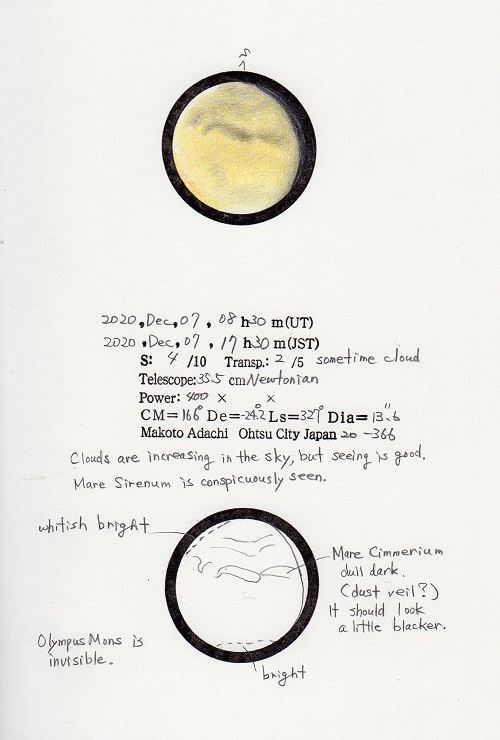 S
2020, Dec, 07, 08 h 30 m (UT)
2020, Dec, 07, 17 h 30 m (JST)
S: 4 /10 Transp.: 2 /5 sometime cloud
Telescope: 355 cm Newtonian
Power: 400 × ×
CM=166° De=-24.2° Ls=327° Dia=13.6"
Makoto Adachi Ohtsu City Japan 20-366
Clouds are increasing in the sky, but seeing is good.
Mare Sirenum is conspicuously seen.
whitish bright
Mare Cimmerium
dull dark.
(dust veil?)
It should look
a little blacker.
Olympus Mons is
invisible.
bright